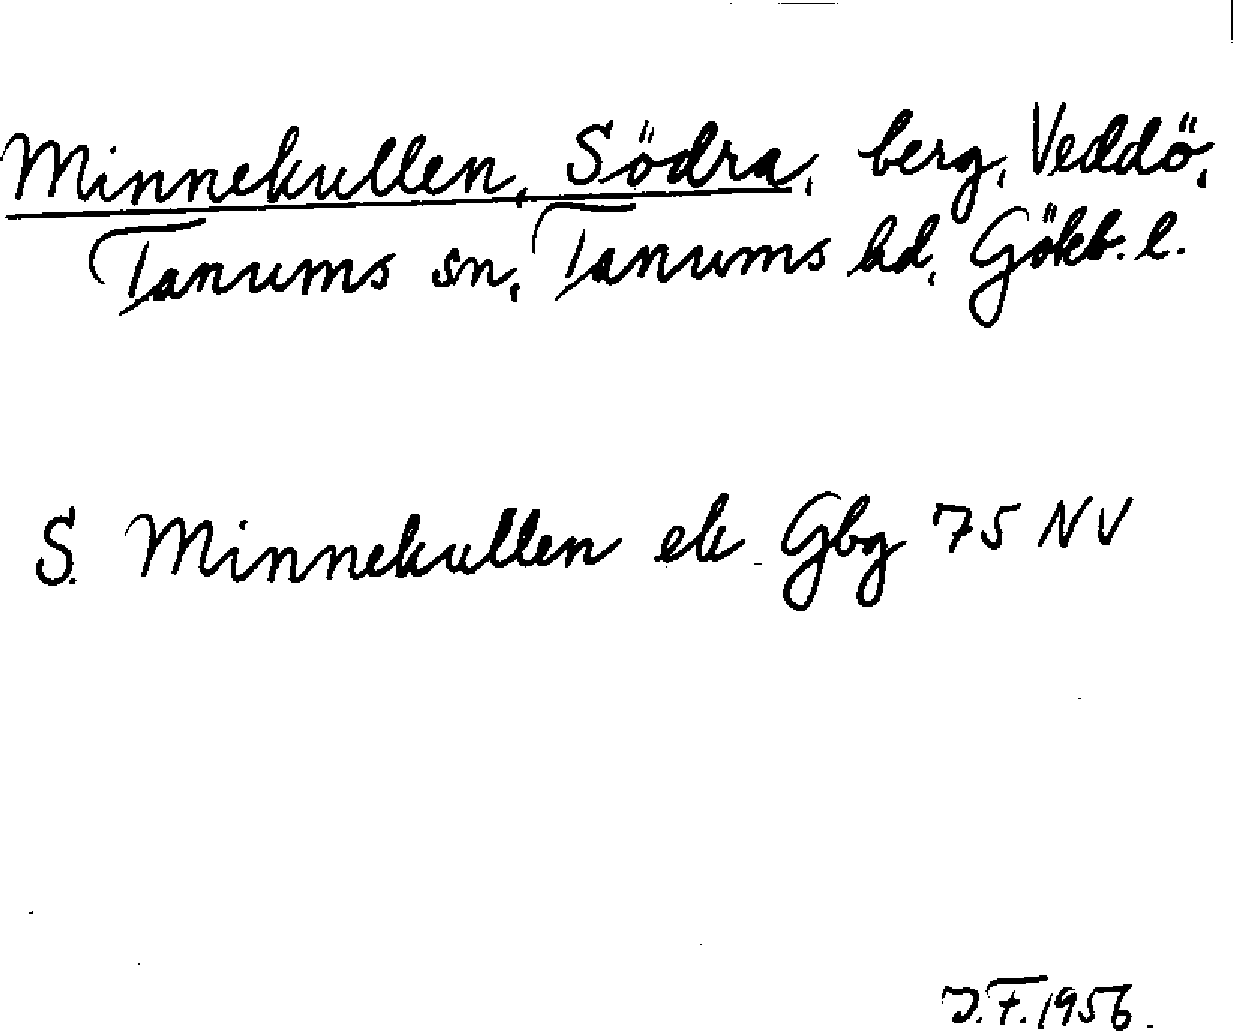 Minnekullen, Södra, berg, Veddö,
Tanums sn, Tanums hd, Gökb. l.
S. Minnekullen ek Gbg 75 NV
J.F. 1956.